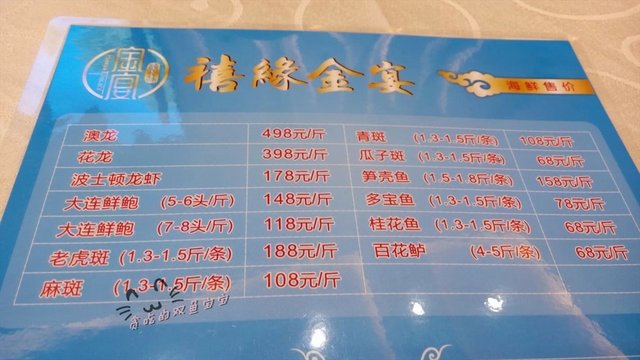 金宴
禧緣金宴
海鲜售价
澳龙 498元/斤
花龙 398元/斤
波士顿龙虾 178元/斤
大连鲜鲍 (5-6头/斤) 148元/斤
大连鲜鲍 (7-8头/斤) 118元/斤
老虎斑 (1.3-1.5斤/条) 188元/斤
麻斑 (1.3-1.5斤/条) 108元/斤
青斑 (1.3-1.5斤/条) 108元/斤
瓜子斑 (1.3-1.5斤/条) 68元/斤
笋壳鱼 (1.5-1.8斤/条) 158元/斤
多宝鱼 (1.3-1.5斤/条) 78元/斤
桂花鱼 (1.3-1.5斤/条) 68元/斤
百花鲈 (4-5斤/条) 68元/斤
贪吃的双鱼宝宝